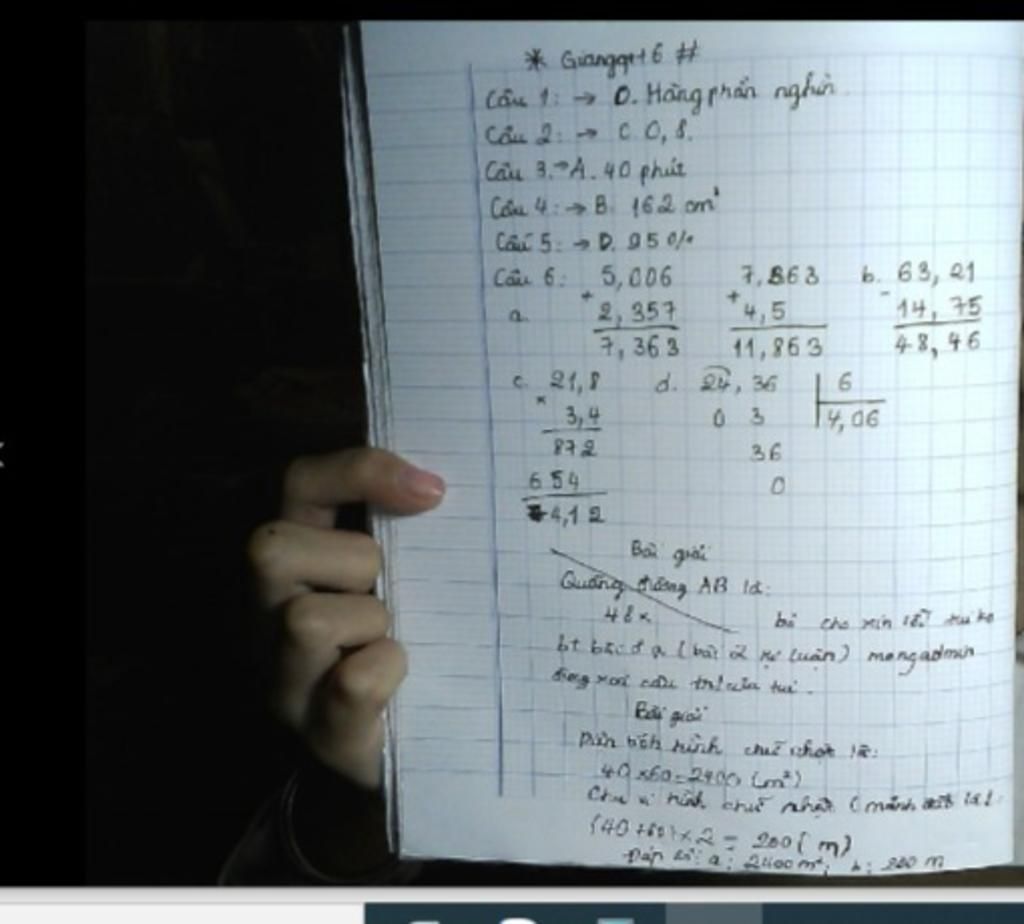 * Giangqt+6 #
Câu 1: → D. Hàng phần nghìn
Câu 2: → C 0, 8.
Câu 3. → A. 40 phút
Câu 4: → B. 162 cm²
Câu 5: → D. 25 0/0
Câu 6: 5,006 7,363 b. 63, 21
a. + 2, 357 + 4,5 - 14, 75
7, 363 11,863 48, 46
c. 21,8 d. 24, 36 6
× 3,4 0 3 4,06
872 36
654 0
74,12
Bài giải
Quãng đường AB là:
48 × bỏ cho xin lỗi tui ko
bt bài a (bài 2 tự luận) mong admin
đừng xoá câu trl của tui.
Bài giải
Diện tích hình chữ nhật là:
40 × 60 = 2400 (m²)
Chu vi hình chữ nhật (mảnh đất) là:
(40 + 60) × 2 = 200 ( m)
Đáp số: a: 2400 m²; b: 200 m